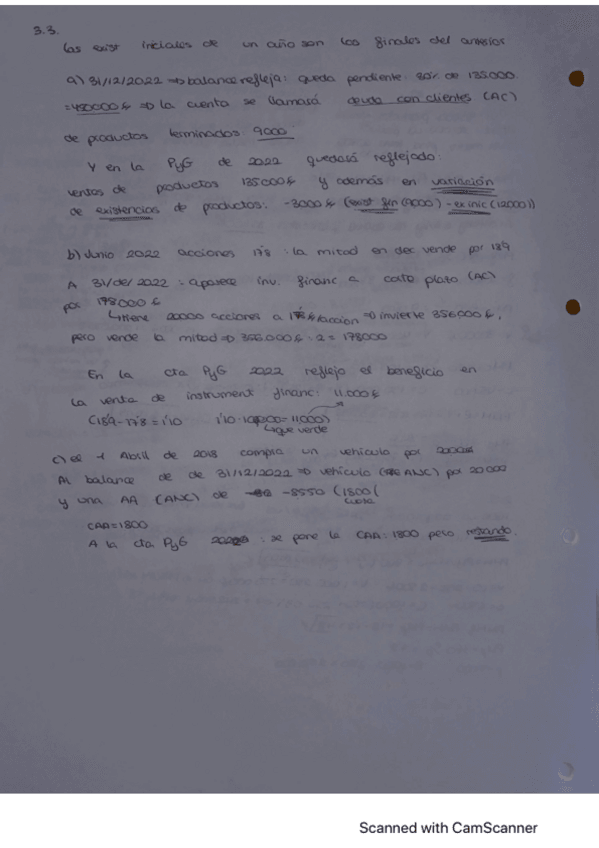 3.3.
Las exist iniciales de un año son las finales del anterior
a) 31/12/2022 => balance refleja: queda pendiente: 80% de 135000
=> la cuenta se llamará deuda con clientes (AC)
de productos terminados 9000
Y en la PyG de 2022 quedará reflejado:
ventas de productos 135000€ y además en variación
de existencias de productos: -3000€ (exist fin (9000) - ex inic (12000))
b) Junio 2022 acciones 17'8 : la mitad en dec vende por 18'9
A 31/de/2022 : aparece inv. financ a corto plazo (AC)
por 178000€
↳ tiene 20000 acciones a 17'8€/accion => invierte 356000€,
pero vende la mitad => 356.000€ : 2 = 178000
En la cta PyG 2022 reflejo el beneficio en
la venta de instrument financ: 11.000€
(18'9-17'8=1'10 1'10·10000=11000)
↳ que vende
c) el 1 Abril de 2018 compra un vehículo por 20000€
Al balance de de 31/12/2022 => vehículo (ANC) por 20000
y una AA (ANC) de -8550 (1800(
cuota
CAA=1800
A la cta PyG : se pone la CAA: 1800 pero restando.
Scanned with CamScanner